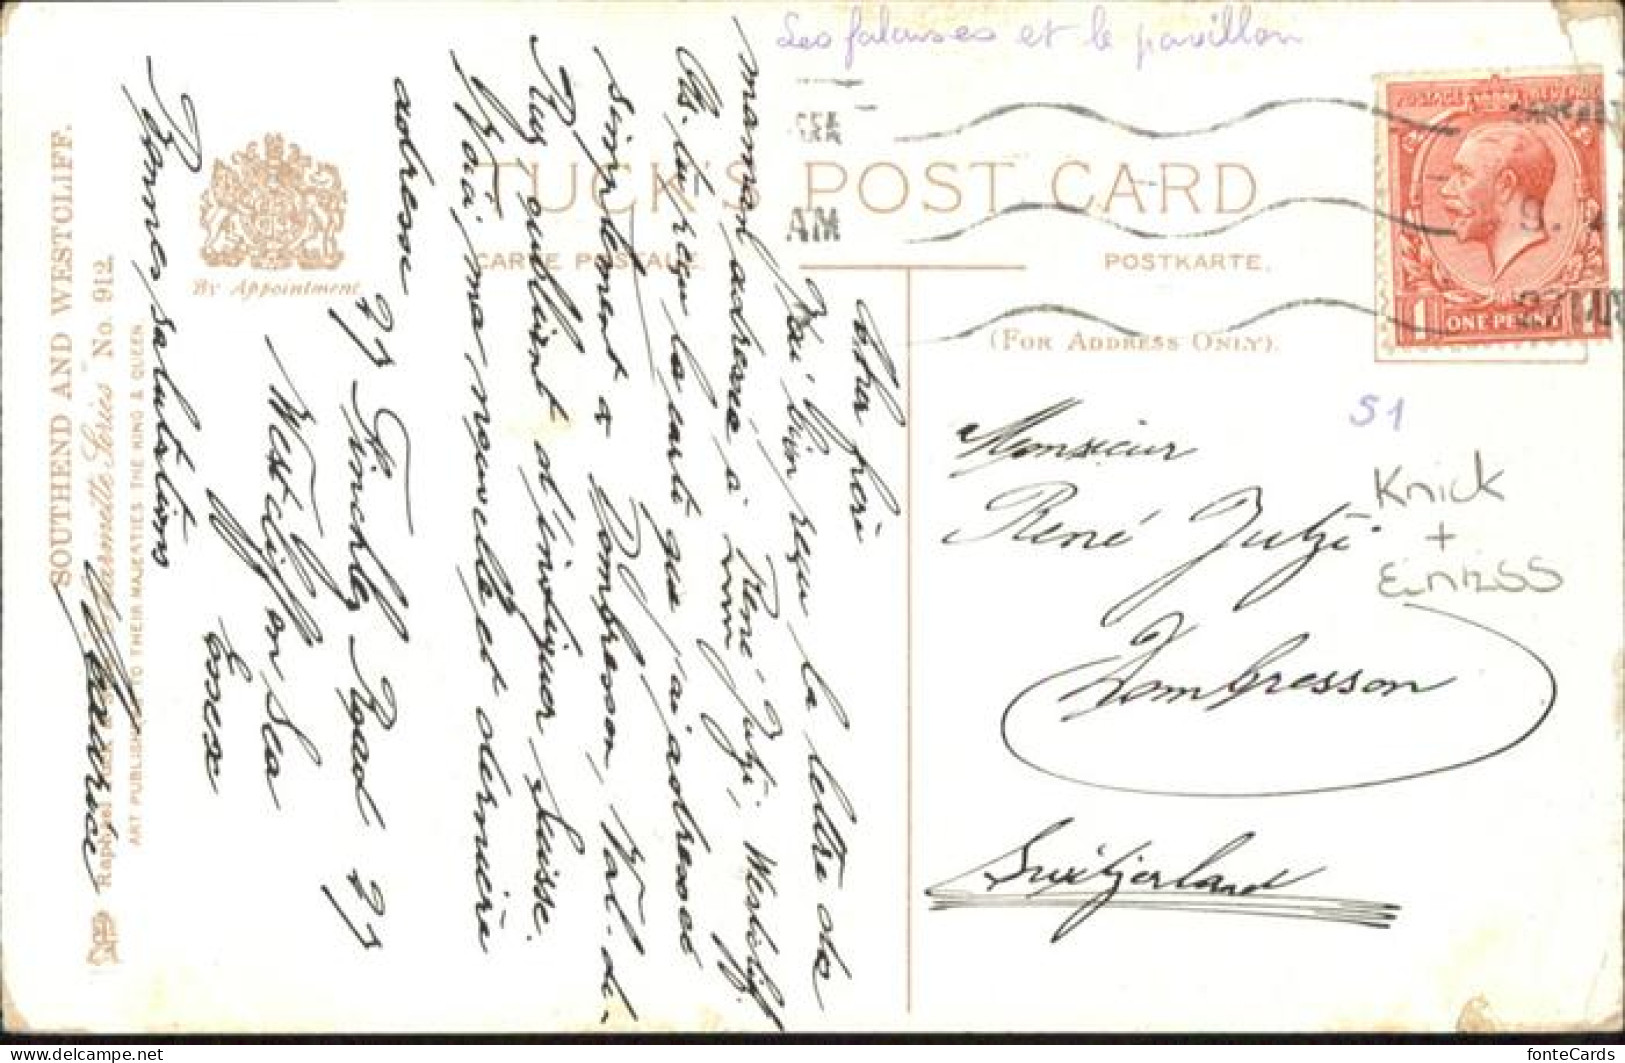 Les falaises et le pavillon
TUCK'S POST CARD
CARTE POSTALE.
POSTKARTE.
(FOR ADDRESS ONLY).
By Appointment
SOUTHEND AND WESTCLIFF.
Raphael Tuck "Charmette" Series No. 912.
ART PUBLISHERS TO THEIR MAJESTIES THE KING & QUEEN.
AM
POSTAGE REVENUE
1 ONE PENNY 1
S1
Knick
+
Monsieur
René Jutzi
Dombresson
Switzerland
Cher frère
J'ai bien reçu la lettre de
maman adressée à René Jutzi, Westcliff.
As-tu reçu la carte que j'ai adressée
simplement à Dombresson, Val-de-
Ruz oubliant d'indiquer Suisse.
Voici ma nouvelle et dernière
adresse
25 Finchley Road 25
Westcliff on Sea
Essex
Bonnes salutations
Maurice
fonteCards